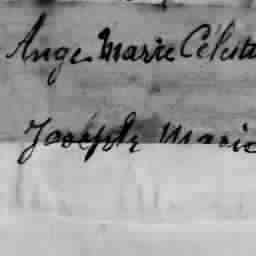 Ange Marie Céleste
Joseph Marie